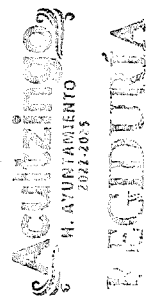 Acultzingo
H. AYUNTAMIENTO
2022-2025
REGIDURÍA